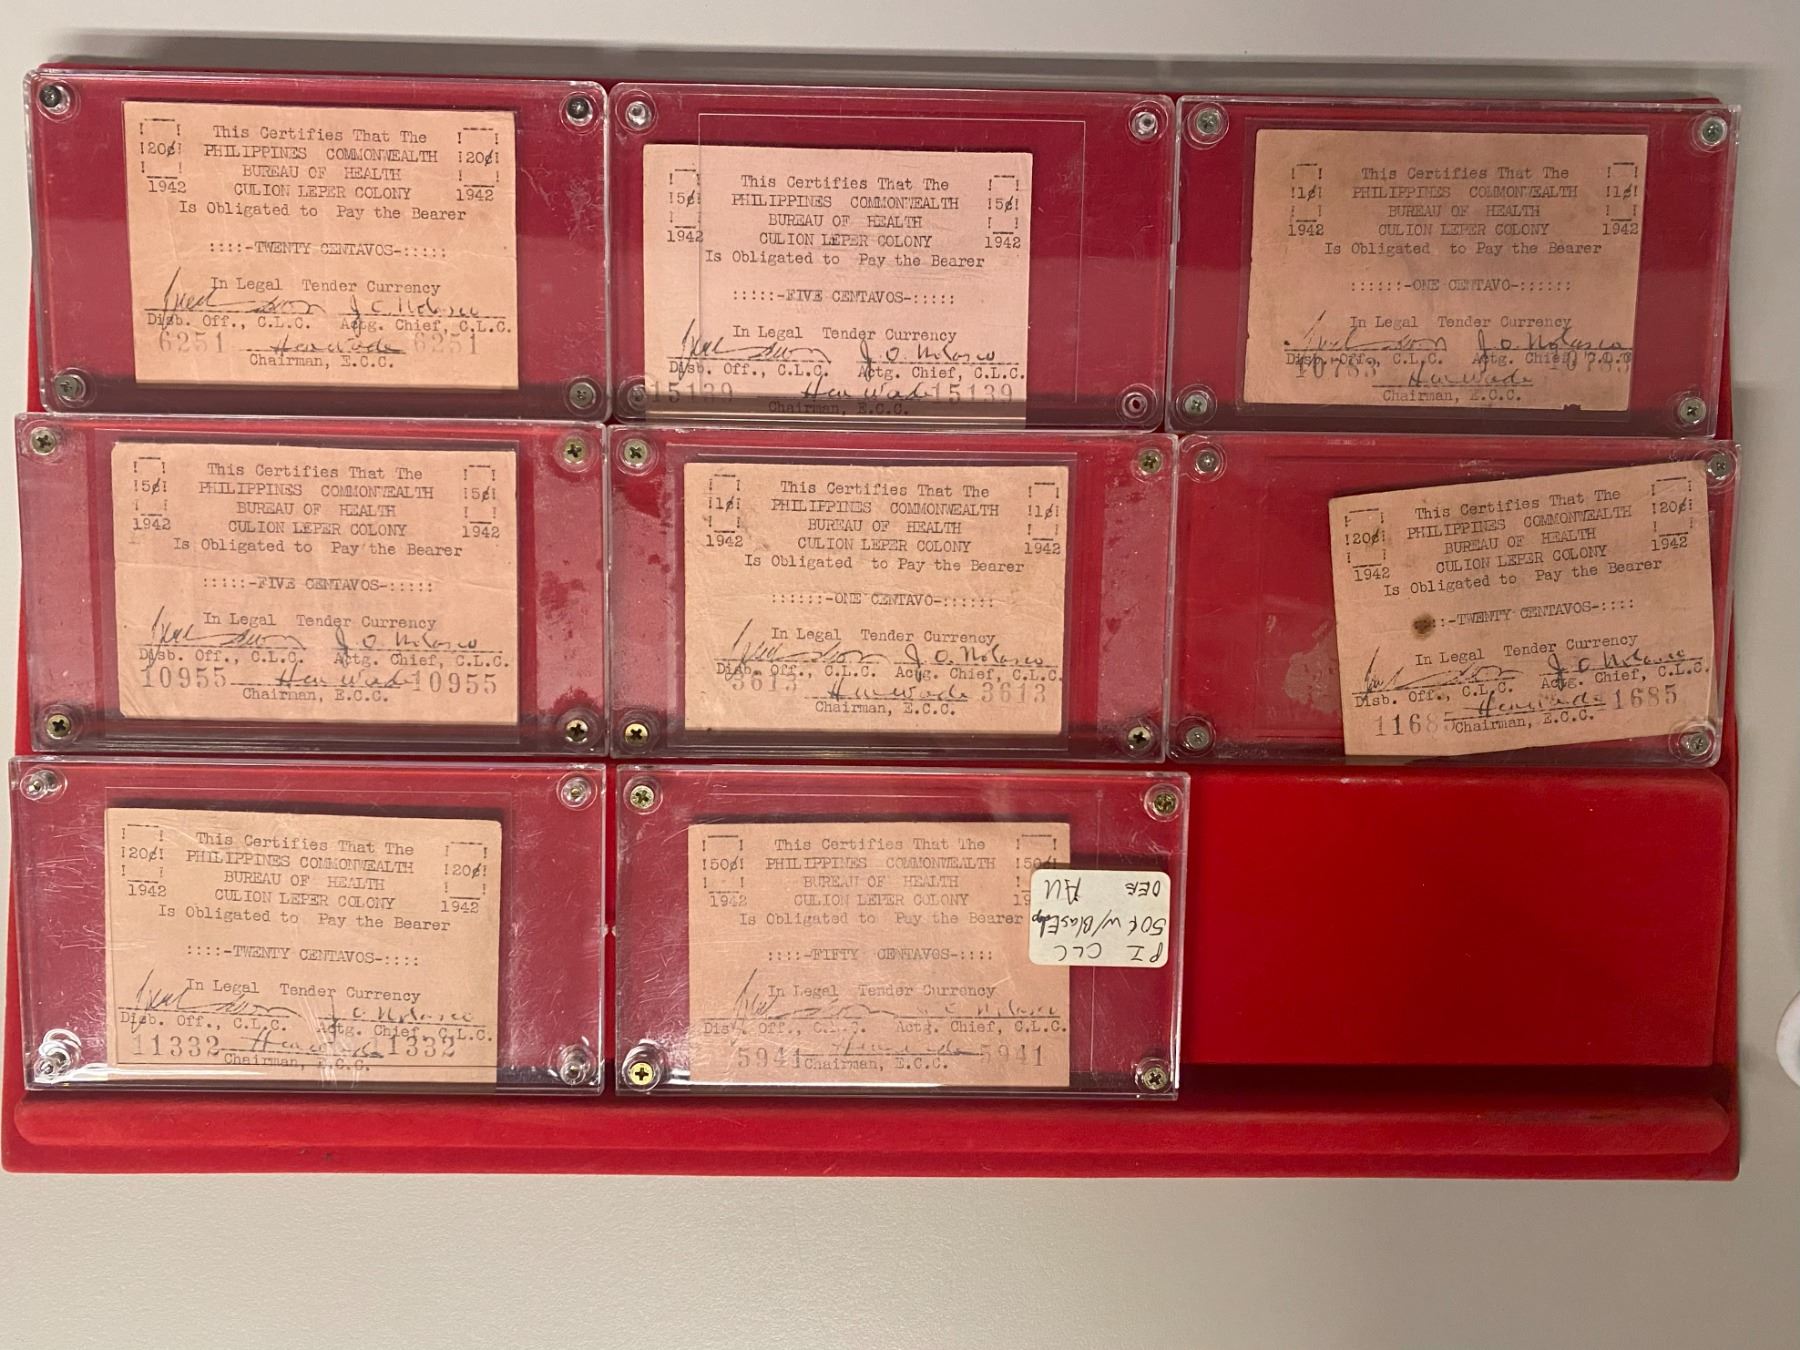 This Certifies That The
PHILIPPINES COMMONWEALTH
BUREAU OF HEALTH
CULION LEPER COLONY
Is Obligated to Pay the Bearer
20¢ 20¢
1942 1942
::::-TWENTY CENTAVOS-:::::
In Legal Tender Currency
J. O. Nolasco
Disb. Off., C.L.C. Actg. Chief, C.L.C.
6251 6251
Chairman, E.C.C.
This Certifies That The
PHILIPPINES COMMONWEALTH
BUREAU OF HEALTH
CULION LEPER COLONY
Is Obligated to Pay the Bearer
5¢ 5¢
1942 1942
:::::-FIVE CENTAVOS-:::::
In Legal Tender Currency
J. O. Nolasco
Disb. Off., C.L.C. Actg. Chief, C.L.C.
15139 15139
Chairman, E.C.C.
This Certifies That The
PHILIPPINES COMMONWEALTH
BUREAU OF HEALTH
CULION LEPER COLONY
Is Obligated to Pay the Bearer
1¢ 1¢
1942 1942
::::::-ONE CENTAVO-::::::
In Legal Tender Currency
J. O. Nolasco
Disb. Off., C.L.C. Actg. Chief, C.L.C.
10783 10783
Chairman, E.C.C.
This Certifies That The
PHILIPPINES COMMONWEALTH
BUREAU OF HEALTH
CULION LEPER COLONY
Is Obligated to Pay the Bearer
5¢ 5¢
1942 1942
:::::-FIVE CENTAVOS-:::::
In Legal Tender Currency
J. O. Nolasco
Disb. Off., C.L.C. Actg. Chief, C.L.C.
10955 10955
Chairman, E.C.C.
This Certifies That The
PHILIPPINES COMMONWEALTH
BUREAU OF HEALTH
CULION LEPER COLONY
Is Obligated to Pay the Bearer
1¢ 1¢
1942 1942
::::::-ONE CENTAVO-::::::
In Legal Tender Currency
J. O. Nolasco
Disb. Off., C.L.C. Actg. Chief, C.L.C.
3613 3613
Chairman, E.C.C.
This Certifies That The
PHILIPPINES COMMONWEALTH
BUREAU OF HEALTH
CULION LEPER COLONY
Is Obligated to Pay the Bearer
20¢ 20¢
1942 1942
-TWENTY CENTAVOS-::::
In Legal Tender Currency
J. O. Nolasco
Disb. Off., C.L.C. Actg. Chief, C.L.C.
11685 1685
Chairman, E.C.C.
This Certifies That The
PHILIPPINES COMMONWEALTH
BUREAU OF HEALTH
CULION LEPER COLONY
Is Obligated to Pay the Bearer
20¢ 20¢
1942 1942
::::-TWENTY CENTAVOS-::::
In Legal Tender Currency
J. O. Nolasco
Disb. Off., C.L.C. Actg. Chief, C.L.C.
11332 1332
Chairman, E.C.C.
This Certifies That The
PHILIPPINES COMMONWEALTH
BUREAU OF HEALTH
CULION LEPER COLONY
Is Obligated to Pay the Bearer
50¢ 50¢
1942 19
::::-FIFTY CENTAVOS-::::
In Legal Tender Currency
Disb. Off., C.L.C. Actg. Chief, C.L.C.
5941 5941
Chairman, E.C.C.
PI CLC
50¢ w/Blas
DEB AU